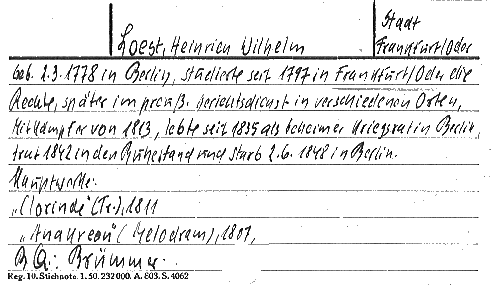 Stadt
Loest, Heinrich Wilhelm Frankfurt/Oder
geb. 2.3.1778 in Berlin, studierte seit 1797 in Frankfurt/Oder die
Rechte, später im preuß. Gerichtsdienst in verschiedenen Orten,
Mitkämpfer von 1813, lebte seit 1835 als Geheimer Kriegsrat in Berlin,
trat 1842 in den Ruhestand und starb 2.6.1848 in Berlin.
Hauptwerke:
„Clorinde" (Tr.), 1811
„Anakreon" (Melodram), 1807,
Qu: Brümmer
Reg. 10. Stichnote. 1. 50. 232 000. A. 803. S. 4062